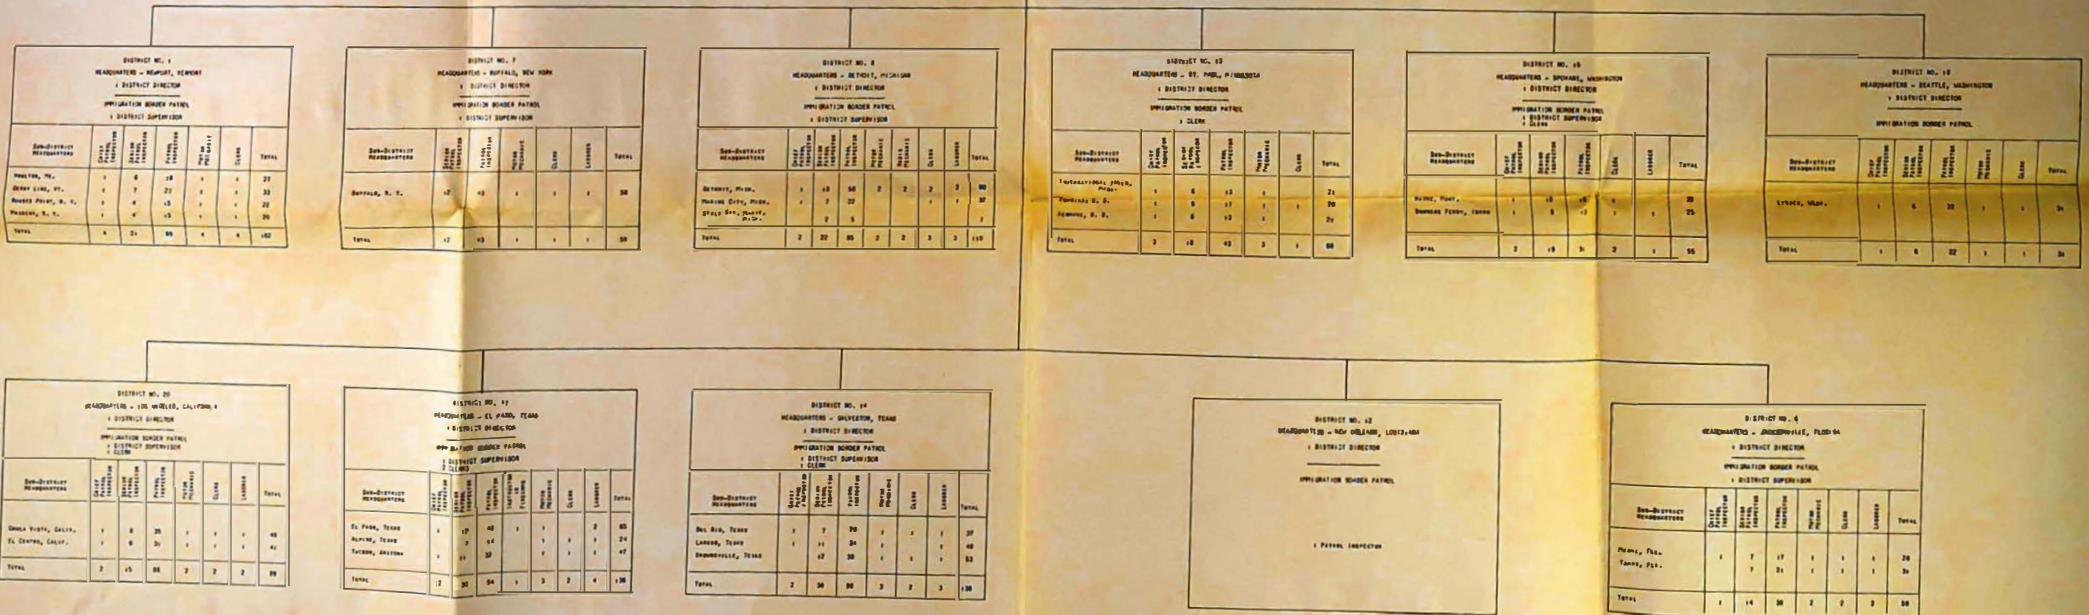 DISTRICT NO. 1
HEADQUARTERS - NEWPORT, VERMONT
1 DISTRICT DIRECTOR
IMMIGRATION BORDER PATROL
1 DISTRICT SUPERVISOR
SUB-DISTRICT HEADQUARTERS CHIEF PATROL INSPECTOR SENIOR PATROL INSPECTOR PATROL INSPECTOR MOTOR MECHANIC CLERK TOTAL
HOULTON, ME. 1 6 18 1 1 27
DERBY LINE, VT. 1 7 23 1 1 33
ROUSES POINT, N. Y. 1 4 15 1 1 22
MASSENA, N. Y. 1 4 1 1
TOTAL 4 21 4 4 102
DISTRICT NO. 7
HEADQUARTERS - BUFFALO, NEW YORK
1 DISTRICT DIRECTOR
IMMIGRATION BORDER PATROL
1 DISTRICT SUPERVISOR
SENIOR PATROL INSPECTOR PATROL INSPECTOR MOTOR MECHANIC CLERK LABORER TOTAL
BUFFALO, N. Y. 12 43 1 1 1 58
TOTAL 12 43 1 1 1 58
DISTRICT NO. 8
HEADQUARTERS - DETROIT, MICHIGAN
1 DISTRICT DIRECTOR
IMMIGRATION BORDER PATROL
1 DISTRICT SUPERVISOR
SUB-DISTRICT HEADQUARTERS CHIEF PATROL INSPECTOR SENIOR PATROL INSPECTOR PATROL INSPECTOR MOTOR MECHANIC MECHANIC CLERK LABORER TOTAL
DETROIT, MICH. 1 13 58 2 2 2 2 80
MARINE CITY, MICH. 1 7 22 1 1 32
SAULT STE. MARIE, MICH. 2 5 7
TOTAL 2 22 85 2 2 3 3 119
DISTRICT NO. 13
HEADQUARTERS - ST. PAUL, MINNESOTA
1 DISTRICT DIRECTOR
IMMIGRATION BORDER PATROL
1 CLERK
SUB-DISTRICT HEADQUARTERS CHIEF PATROL INSPECTOR SENIOR PATROL INSPECTOR PATROL INSPECTOR MOTOR MECHANIC CLERK TOTAL
INTERNATIONAL FALLS, MINN. 1 6 13 1 21
PEMBINA, N. D. 1 17 1 1
N. D. 1 6 13 1 21
TOTAL 3 18 43 3 1 68
DISTRICT NO.
HEADQUARTERS - SPOKANE, WASHINGTON
1 DISTRICT DIRECTOR
IMMIGRATION BORDER PATROL
1 DISTRICT SUPERVISOR
1 CLERK
SUB-DISTRICT HEADQUARTERS CHIEF PATROL INSPECTOR SENIOR PATROL INSPECTOR PATROL INSPECTOR CLERK LABORER TOTAL
HAVRE, MONT. 1 10 1
BONNERS FERRY, IDAHO 1 1 1 25
TOTAL 2 2 1 55
DISTRICT NO.
HEADQUARTERS - SEATTLE, WASHINGTON
1 DISTRICT DIRECTOR
IMMIGRATION BORDER PATROL
SUB-DISTRICT HEADQUARTERS CHIEF PATROL INSPECTOR SENIOR PATROL INSPECTOR PATROL INSPECTOR MOTOR MECHANIC CLERK TOTAL
LYNDEN, WASH. 1 6 22 1 1 31
TOTAL 1 6 22 1 1 31
DISTRICT NO. 20
HEADQUARTERS - LOS ANGELES, CALIFORNIA
1 DISTRICT DIRECTOR
IMMIGRATION BORDER PATROL
1 DISTRICT SUPERVISOR
1 CLERK
SUB-DISTRICT HEADQUARTERS CHIEF PATROL INSPECTOR SENIOR PATROL INSPECTOR PATROL INSPECTOR MOTOR MECHANIC CLERK LABORER TOTAL
CHULA VISTA, CALIF. 1 35 1 1 1
EL CENTRO, CALIF. 1 31 1 1 1
TOTAL 2 15 2 2 2
DISTRICT NO. 17
HEADQUARTERS - EL PASO, TEXAS
1 DISTRICT DIRECTOR
IMMIGRATION BORDER PATROL
1 DISTRICT SUPERVISOR
2 CLERKS
SUB-DISTRICT HEADQUARTERS CHIEF PATROL INSPECTOR SENIOR PATROL INSPECTOR PATROL INSPECTOR INSTRUCTOR IN FIREARMS MOTOR MECHANIC CLERK LABORER TOTAL
EL PASO, TEXAS 1 1 1 2 65
ALPINE, TEXAS 7 14 1 1 1 24
TUCSON, ARIZONA 1 11 32 1 1 1 47
TOTAL 2 94 1 3 2 4
DISTRICT NO. 14
HEADQUARTERS - GALVESTON, TEXAS
1 DISTRICT DIRECTOR
IMMIGRATION BORDER PATROL
1 DISTRICT SUPERVISOR
1 CLERK
SUB-DISTRICT HEADQUARTERS CHIEF PATROL INSPECTOR SENIOR PATROL INSPECTOR PATROL INSPECTOR MOTOR MECHANIC CLERK LABORER TOTAL
DEL RIO, TEXAS 1 7 1 1 1 37
LAREDO, TEXAS 1 11 34 1 1 48
BROWNSVILLE, TEXAS 12 38 1 1 1 53
TOTAL 2 30 3 2 3 138
DISTRICT NO. 12
HEADQUARTERS - NEW ORLEANS, LOUISIANA
1 DISTRICT DIRECTOR
IMMIGRATION BORDER PATROL
1 PATROL INSPECTOR
DISTRICT NO. 6
HEADQUARTERS - JACKSONVILLE, FLORIDA
1 DISTRICT DIRECTOR
IMMIGRATION BORDER PATROL
1 DISTRICT SUPERVISOR
SUB-DISTRICT HEADQUARTERS CHIEF PATROL INSPECTOR SENIOR PATROL INSPECTOR PATROL INSPECTOR MOTOR MECHANIC CLERK LABORER TOTAL
MIAMI, FLA. 1 7 17 1 1 1 28
TAMPA, FLA. 7 21 1 1 1 31
TOTAL 1 14 38 2 2 2